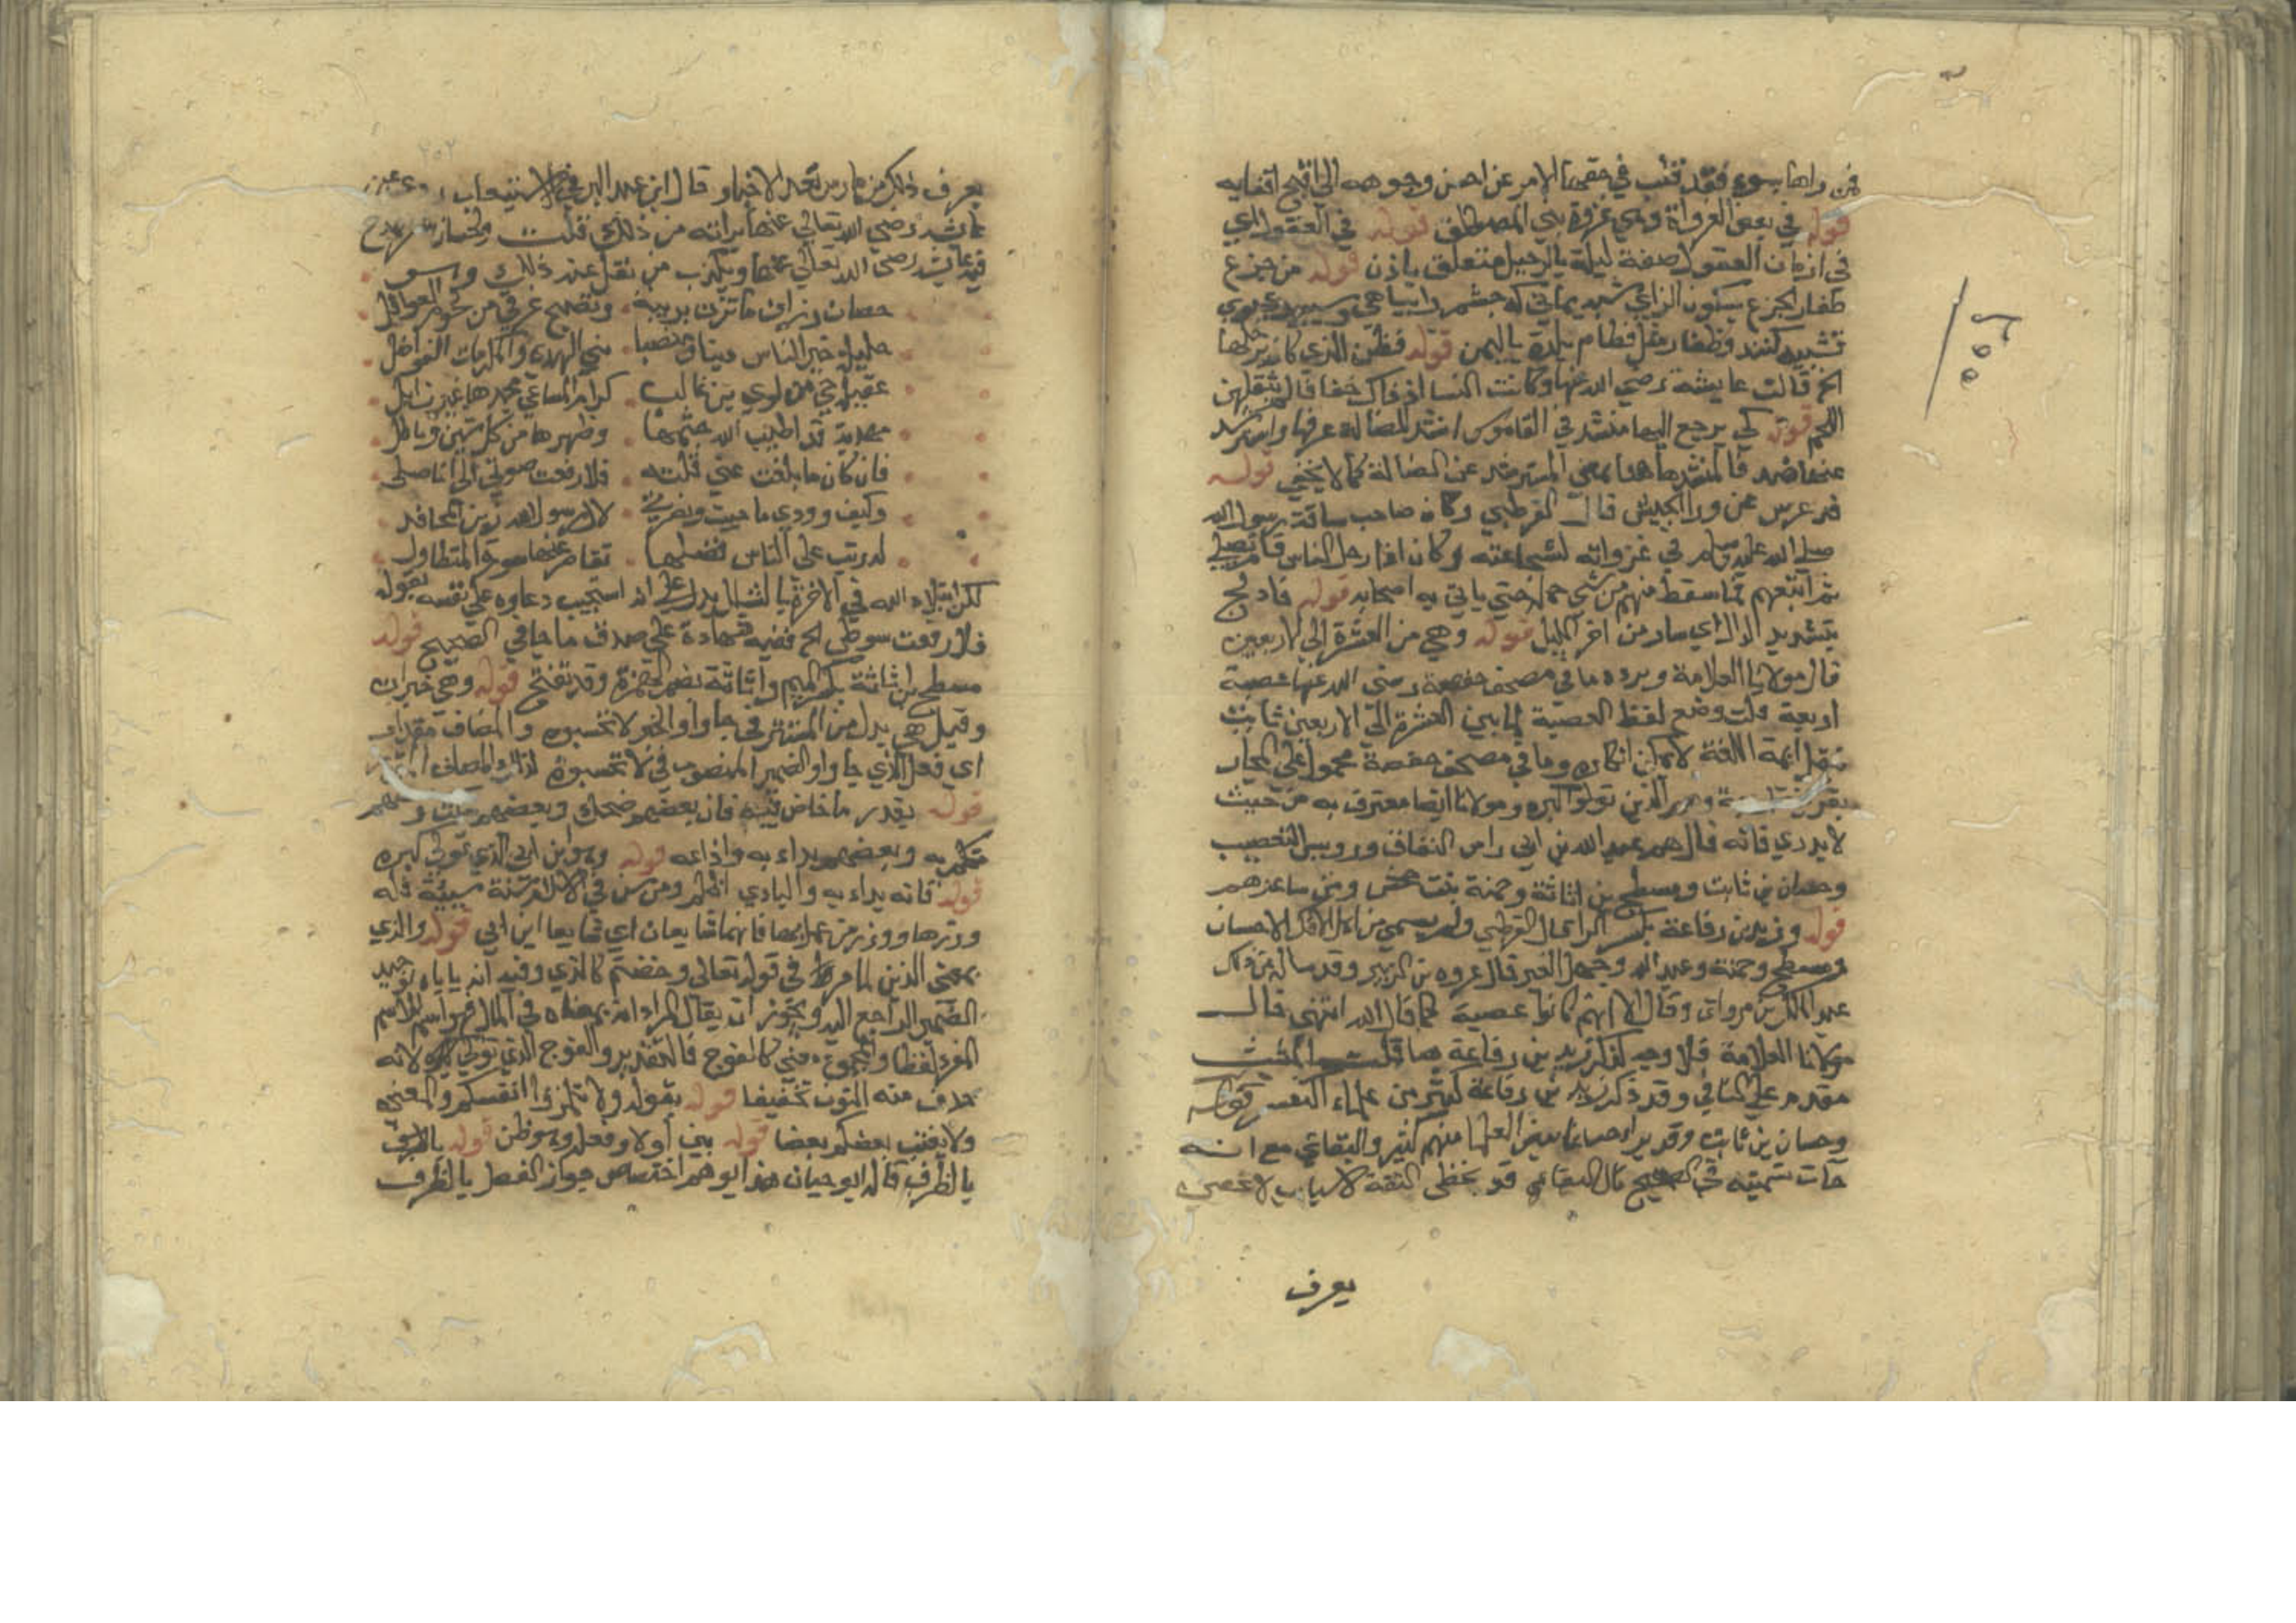 فمن راها بسوء فقد قلب في حقها الامر عن احسن وجوهه الى اقبح اقفايه
قوله في بعض الغزوات وهي غزوة بني المصطلق قوله في القفول اي
في ازمان القفول صفة ليلة بالرحيل متعلق باذن قوله من جزع
ظفار الجزع بسكون الزاي شبه يماني كه
كنند وظفار مثل قطام بلدة باليمن قوله فظن الذي كان يرحلها
الخ قالت عايشة رضي الله عنها وكانت النسا اذ ذاك خفافا لم يثقلهن
اللحم قوله كي يرجع اليها منشد في القاموس انشد الضالة عرفها واسترشد
عنها ضد فالمنشد ههنا بمعنى المسترشد عن الضالة كما لا يخفى قوله
قد عرس من ورا الجيش قال القرطبي وكان صاحب ساقة رسول الله
صلى الله عليه وسلم في غزواته لشجاعته وكان اذا رحل الناس قام يصلي
ثم اتبعهم فما سقط منهم من شي حمله حتى ياتي به اصحابه قوله فادلج
بتشديد الدال اي سار من اخر الليل قوله وهي من العشرة الى الاربعين
قال مولانا العلامة ويرده ما في مصحف حفصة رضي الله عنها عصبة
اربعة قلت وضع لفظ العصبة لما بين العشرة الى الاربعين ثابت
بنقل ايمة اللغة لا يمكن انكاره وما في مصحف حفصة محمول على المجاز
الذين تولوا كبره ومولانا ايضا معترف به من حيث
لا يدري فانه قال هم عبد الله بن ابي راس النفاق
وحسان بن ثابت ومسطح بن اثاثة وحمنة بنت جحش ومن ساعدهم
قوله وزيد بن رفاعة بكسر الرا قال القرطبي ولم يسم من اهل الافك الا حسان
ومسطح وحمنة وعبد الله وجهل الغير قال عروه بن الزبير وقد ساله عن ذلك
عبد الملك بن مروان وقال الا انهم كانوا عصبة كما قال الله انتهى قال
مولانا العلامة فلا وجه لذكر زيد بن رفاعة ههنا قلت المثبت
مقدم على النافي وقد ذكر زيد بن رفاعة كثير من علماء التفسير قوله
وحسان بن ثابت وقد برا حسانا بعض العلما منهم كثير والبقاعي مع انه
جات تسميته في الصحيح قال البقاعي قد يخطى الثقة لاسباب لا تحصى
يعرف
٢٥٥
٢٥٢
يعرف ذلك من مارس نقد الاخبار قال ابن عبد البر في الاستيعاب
عايشة رضي الله تعالى عنها براته من ذلك قلت
عايشة رضي الله تعالى عنها ويكذب من نقل عنه ذلك
حصان رزان ما تزن بريبة وتصبح غرثى من لحوم الغوافل
حليلة خير الناس دينا ومنصبا نبي الهدى والمكرمات الفواضل
عقيلة حي من لوي بن غالب كرام المساعي مجدها غير زايل
مهذبة قد اطيب الله خيمها وطهرها من كل شين وباطل
فان كان ما بلغت عني قلته فلا رفعت صوتي الي اناملي
وكيف وودي ما حييت ونصرتي لال رسول الله زين المحافل
له رتب على الناس فضلها تقاصر عنها سورة المتطاول
لكن ابتلاء الله في الاخرة بالشلل يدل على انه استجيب دعاوه على نفسه بقوله
فلا رفعت سوطي الخ ففيه شهادة على صدق ما جا في الصحيح قوله
مسطح بن اثاثة بكسر الميم واثاثة بضم الهمزة وقد تفتح قوله وهي خبر ان
وقيل هي بدل من المستتر في جاوا والخبر لا تحسبوه والمضاف مقدر
اي فعل الذي جاوا والضمير المنصوب في لا تحسبوه لذلك المضاف
قوله بقدر ما خاض فيه فان بعضهم ضحك وبعضهم
تكلم به وبعضهم بداء به واذاعه قوله وهو ابن ابي الذي تولى كبره
قوله فانه بداء به والبادي اظلم ومن سن في الاسلام سنة سيئة فله
وزرها ووزر من عمل بها فانهما شايعان اي تبايعا ابن ابي قوله والذي
بمعنى الذين كما مر في قوله تعالى وخضتم كالذي وفيه انه ياباه توحيد
الضمير الراجع اليه ويجوز ان يقال المراد انه بمعناه في المال فهو اسم للاسم
المفرد لفظا والمجموع معنى كالفوج فالتقدير والفوج الذي تولى كبره لا انه
حذف منه النون تخفيفا قوله بقوله ولا تلمزوا انفسكم والمعنى
ولا يغتب بعضكم بعضا قوله بين لولا وفعله وهو ظن قوله بالظرف
بالظرف قال ابو حيان هذا يوهم اختصاص جواز الفصل بالظرف